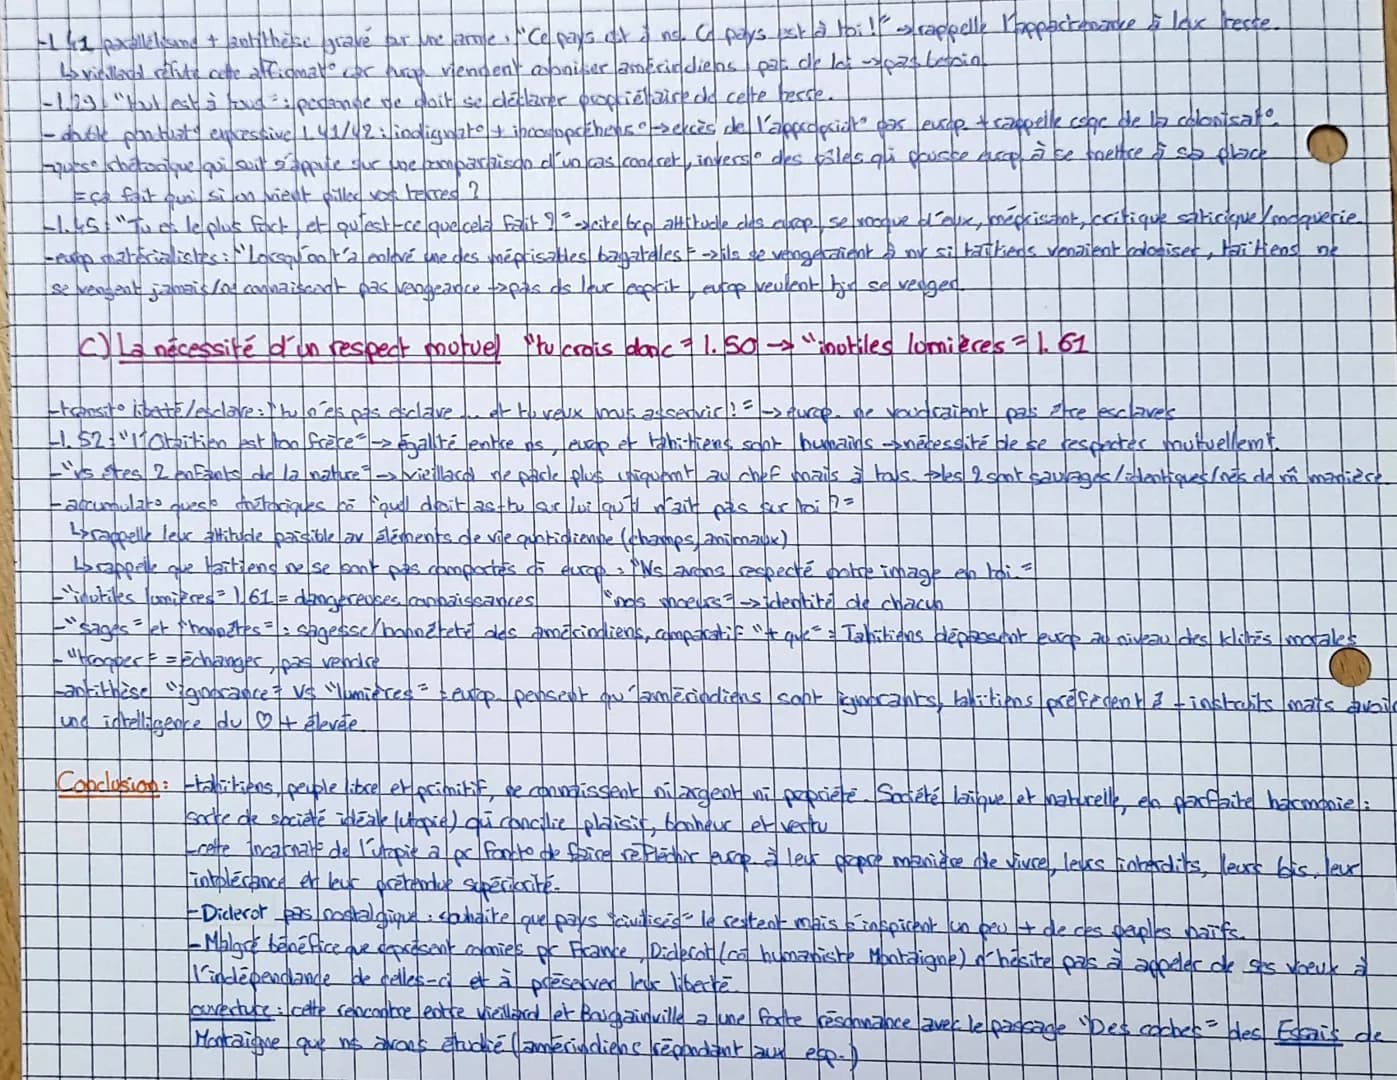 -l.41 parallélisme + antithèse gravé sur une lame : "Ce pays est à ns. Ce pays est à toi !" → rappelle l'appartenance à leur terre.
↳ vieillard réfute cette affirmat° car europ viennent coloniser amérindiens, pas de loi → pas besoin
-l.29 : "tout est à tous" : personne ne doit se déclarer propriétaire de cette terre.
- double ponctuat° expressive l.41/42 : indignat° + incompréhens° → excès de l'appropriat° par europ + rappelle choc de la colonisat°.
-quest° rhétorique qui suit s'appuie sur une comparaison d'un cas concret, invers° des rôles qui pousse europ à se mettre à sa place
= ça fait quoi si on vient piller vos terres ?
-l.45 : "Tu es le plus fort, et qu'est-ce que cela fait ?" → cite bcp attitude des europ, se moque d'eux, méprisant, critique satirique/moquerie.
-europ matérialistes : "Lorsqu'on t'a enlevé une des méprisables bagatelles" → ils se vengeraient à mr si taïtiens venaient coloniser, taïtiens ne
se vengent jamais/ne connaissent pas vengeance → pas ds leur esprit, europ veulent tjr se venger.
C) La nécessité d'un respect mutuel "tu crois donc" l.50 → "inutiles lumières" l.61
-transit° liberté/esclave : "tu n'es pas esclave ... et tu veux nous asservir !" → europ. ne voudraient pas être esclaves
-l.52 : "l'Otaïtien est ton frère" → égalité entre ns, europ et tahitiens sont humains → nécessité de se respecter mutuellemt.
-"vs êtes 2 enfants de la nature" → vieillard ne parle plus uniquemt au chef mais à tous. → les 2 sont sauvages/identiques/nés de la m̂ manière.
-accumulat° quest° rhétoriques co "quel droit as-tu sur lui qu'il n'ait pas sur toi ?"
↳ rappelle leur attitude paisible av éléments de vie quotidienne (champs, animaux)
↳ rappelle que taïtiens ne se sont pas comportés co europ : "Ns avons respecté notre image en toi."
-"inutiles lumières" l.61 = dangereuses connaissances "nos moeurs" → identité de chacun
-"sages" et "honnêtes" : sagesse/honnêteté des amérindiens, comparatif "+ que" = Tahitiens dépassent europ au niveau des qlités morales
-"troquer" = échanger, pas vendre
-antithèse "ignorance" vs "lumières" : europ. pensent qu'amérindiens sont ignorants, tahitiens préfèrent ê - instruits mais avoir
une intelligence du ♡ + élevée.
Conclusion : -tahitiens, peuple libre et primitif, ne connaissent ni argent ni propriété. Société laïque et naturelle, en parfaite harmonie :
sorte de société idéale (utopie) qui concilie plaisir, bonheur et vertu
-cette incarnat° de l'utopie a pr fonct° de faire réfléchir europ à leur propre manière de vivre, leurs interdits, leurs lois, leur
intolérance et leur prétendue supériorité.
-Diderot pas nostalgique : souhaite que pays "civilisés" le restent mais s'inspirent un peu + de ces peuples naïfs.
-Malgré bénéfice que représent colonies pr France, Diderot (co humaniste Montaigne) n'hésite pas à appeler de ses voeux à
l'indépendance de celles-ci et à préserver leur liberté.
ouverture : cette rencontre entre vieillard et Bougainville a une forte résonnance avec le passage "Des coches" des Essais de
Montaigne que ns avons étudié (amérindiens répondant aux esp.)